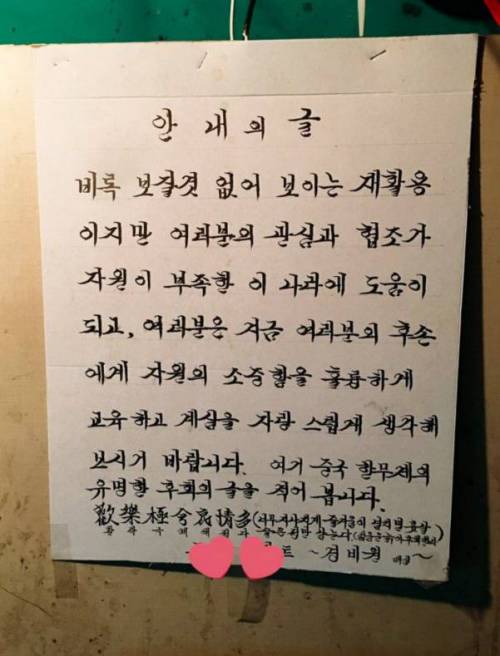 안 내의 글
비록 보잘것 없어 보이는 재활용
이지만 여러분의 관심과 협조가
자원이 부족한 이 나라에 도움이
되고, 여러분은 지금 여러분의 후손
에게 자원의 소중함을 훌륭하게
교육하고 계심을 자랑 스럽게 생각해
보시기 바랍니다. 여기 중국 한무제의
유명한 후회의 글을 적어 봅니다.
歡樂極兮哀情多(너무 지나치게 즐거움이
환락극혜애정다
~경비원